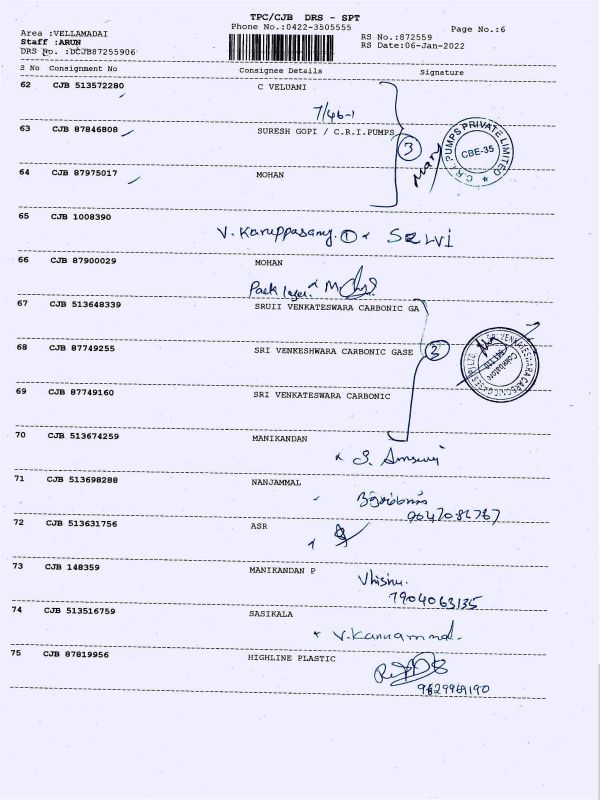 TPC/CJB DRS - SPT
Phone No.:0422-3505555 Page No.:6
Area :VELLAMADAI
Staff :ARUN
DRS No. :DCJB87255906
RS No.:872559
RS Date:06-Jan-2022
S No Consignment No Consignee Details Signature
62 CJB 513572280 C VELUANI
7/46-1
63 CJB 87846808 SURESH GOPI / C.R.I.PUMPS
3
C.R.I. PUMPS PRIVATE LIMITED
CBE-35
64 CJB 87975017 MOHAN
65 CJB 1008390
V. Karuppasamy 1 SELVI
66 CJB 87900029 MOHAN
67 CJB 513648339 SRUII VENKATESWARA CARBONIC GA
68 CJB 87749255 SRI VENKESHWARA CARBONIC GASE
3
SRI VENKATESWARA CARBONIC GASES (P) LTD
Coimbatore
69 CJB 87749160 SRI VENKATESWARA CARBONIC
70 CJB 513674259 MANIKANDAN
71 CJB 513698288 NANJAMMAL
72 CJB 513631756 ASR
73 CJB 148359 MANIKANDAN P
Vhishnu.
7904063135
74 CJB 513516759 SASIKALA
75 CJB 87819956 HIGHLINE PLASTIC
9629969190